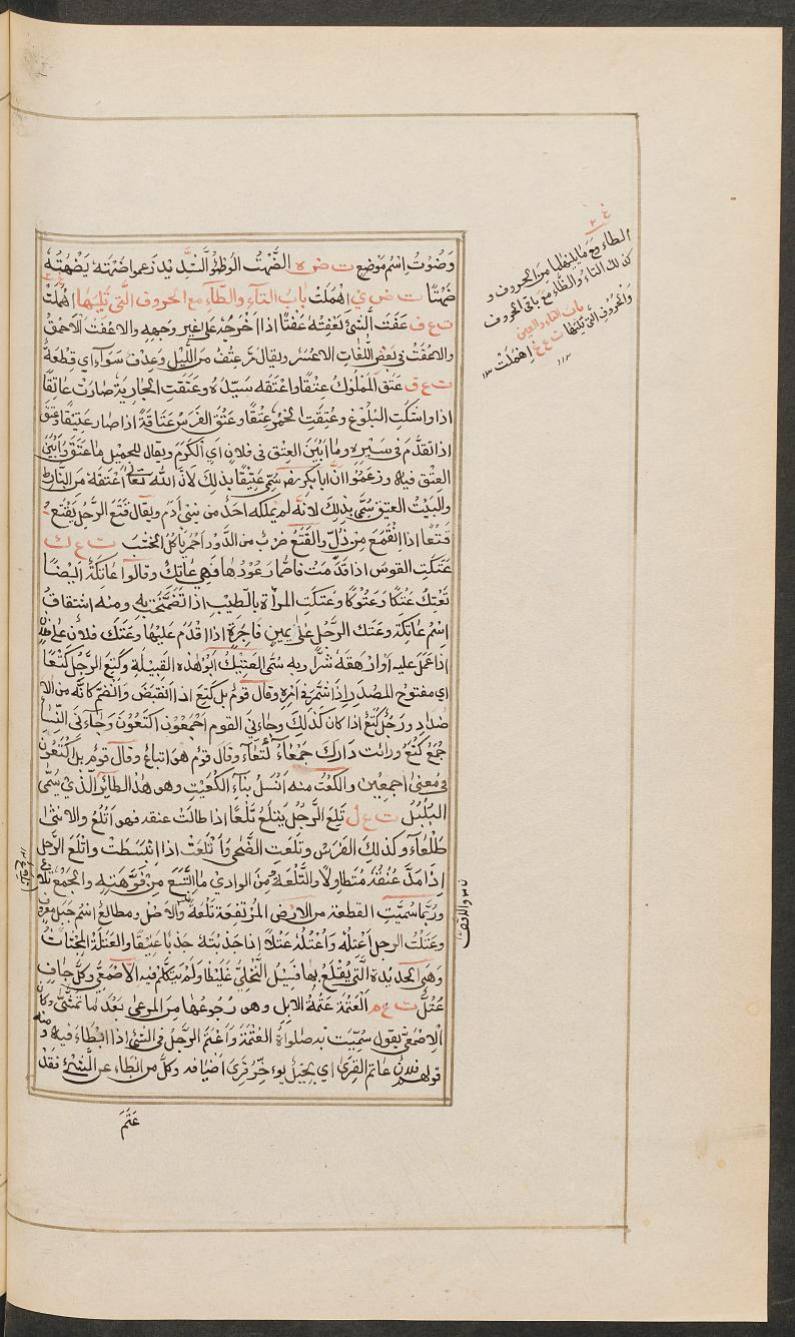 وَضُوْتُ اِسْم مَوْضِع ت ض ه الضَّهْتُ الوَطْؤُ الشَّدِيْد زَعموا ضَهَتَهُ يَضْهَتُهُ
ضَهْتًا ت ض ي اُهْمِلَتْ بابُ التآءِ والطّآءِ مع الحروف الَّتي تَلِيهَا اُهْمِلَتْ
ت ع ف عَفَتَ الشَّيْ يَعْفِتُهُ عَفْتًا اذا اَخْرَجَهُ عَلى غير وَجهِهِ والاعْفَتُ الاَحْمَقُ
والاعْفَتُ في بَعْضِ اللُّغاتِ الاَعْسَر ويقال مَرّ عِتْفٌ مِنَ اللَّيْلِ وَعِدْفٌ سَوَآء اي قِطْعَةٌ
ت ع ق عَتَقَ المَمْلُوكُ عِتْقًا واَعْتَقَه سَيِّدُهُ وعَتَقَتِ الجارِيَةُ صَارَتْ عَاتِقًا
اذا واشَكَتِ البُلُوْغَ وعُتِقَتِ الخمرُ عِتْقًا وعَتُقَ الفَرَسُ عَتَاقَةً اذا صار عَتِيْقًا وعَتَقَ
اذا تقدَّمَ في سَيْرِهِ وما اَبْيَنَ العِتْقَ في فلانٍ اَيِ الكَرَمَ ويقال للجميْلِ ما عَتَقَ وَاَبْيَنَ
العِتْق فيه وزعَمُوا انَّ ابا بكرٍ رضـ سُمِّيَ عَتِيْقًا بذلك لاَنَّ الله تعالى اَعْتَقَهُ مِنَ النَّارِ
والبَيْتُ العتيق سُمِّيَ بِذلِكَ لاَنَّه لم يملكه احَدٌ من بَنِي اٰدَم ويقال قَتَعَ الرَّجُلُ يَقْتَعُ
قُتُعًا اذا انْقَمَعَ مِنْ ذُلٍّ والقَتَعُ ضربٌ من الدُّوْدِ احْمَرُ يَاكُل الخشَبَ ت ع ك
عَتَكَتِ القَوْسُ اذا قَدُمَتْ فاحْمارَ عُوْدُها فهي عاتِكٌ وقالُوا عَاتِكَةٌ اَيْضًا
تَعْتِكُ عَتْكًا وعُتُوكًا وعَتَكَتِ المراْة بالطِّيْبِ اذا تَضَمَّخَتْ بِهِ ومنه اشتقاقُ
اسْمُ عَاتِكَةَ وعَتَكَ الرَّجُلُ على يمينٍ فاجِرَةٍ اذا اقْدَمَ عَلَيْهَا وعَتَكَ فلانٌ على فلانٍ
اذا حَمَلَ عليه اَوْ اَرْهَقَهُ شَرًّا وبه سُمِّيَ العَتِيْكُ اَبُوْ هٰذِه القَبِيْلَةِ وكَتِعَ الرَّجُلُ كَتَعًا
اي مفتوحُ المَصْدَرِ اِذَا شَمَّرَ في اَمْرِهِ وقال قومٌ بل كَتَعَ اذا انْقَبَضَ وَانْضَمَّ كانَّه من الا
ضداد ورَجُلٌ كُتَعٌ اذا كان كَذٰلِكَ وجاءني القوم اَجْمَعُوْنَ اَكْتَعُوْنَ وجَاءَتْني النِّسَآ
جُمَعُ كُتَعُ ورايت دَارَكَ جَمْعَاءَ كَتْعَاءَ وقال قوم هو اتباعٌ وقال قومٌ بل اَكْتَعُوْنَ
في مَعْنَى اجمعِيْنَ والكُعْتُ منه اُنْسِلُ بنَاءَ الكُعَيْتِ وهو هٰذا الطائر الَّذي يُسَمَّى
البُلْبُلُ ت ع ل تَلِعَ الرَّجُلُ يَتْلَعُ تَلَعًا اذا طالَتْ عنقه فهو اَتْلَعُ والانثى
تَلْعَآء وكذلِكَ الفَرَس وتَلَعَتِ الضُّحى وَاَتْلَعَتْ اذا انْبَسَطَتْ واَتْلَعَ الرَّجل
اِذَا مَدَّ عُنُقَهُ مُتَطاوِلًا والتَّلْعَةُ مِنَ الوادِي ما اتَّسَعَ مِنْ فَوَّهَتِهِ والجمْعُ تِلَاعٌ
ورُبَّمَا سُمِّيَتِ القطعة من الارْضِ المُرْتَفِعَة تَلْعَةً والاَصْل ومطالع اسْم جَبَل معروف
وعَتَلْتُ الرجل اَعْتِلُه وَاَعْتُلُهُ عَتْلًا اذا جَذَبْتَهُ جَذْبًا عَنِيفًا والعَتَلَةُ المِجْثَاتُ
وَهِيَ الحَدِيْدَة الَّتي يُقْلَعُ بها فَسِيْلُ النَّخْلِ غَلِيْظًا وَلَمْ يَتَكَلَّم فيه الاَصْمَعِيُّ وكلُّ جافٍ
عُتُلٌّ ت ع م العَتَمَة عَتَمَةُ الابِلِ وهو رُجُوعُهَا مِنَ المرعى بَعْدَ ما تَمَشَّى وكانَ
الاَصْمَعِيُّ يقولُ سُمِّيَتْ به صلواةُ العَتَمَةِ وَاَعْتَمَ الرَّجُلُ في الشئ اِذَا ابْطَاءَ فيه ومنه
قولهم فلانٌ عَاتم القِرَى اي بخيلٌ يوءخِّر قِرَى اَضْيافه وكلّ من ابْطَاء عن الشَّيْءِ فَقَدْ
عَتَّمَ
الطاء مع ما يليها من الحروف و
كذلك التاء والظاء مع باقي الحروف
والحُرُوْفِ الَّتي تَلِيهَا
باب التاء والعين
ت ع غ اُهْمِلَتْ